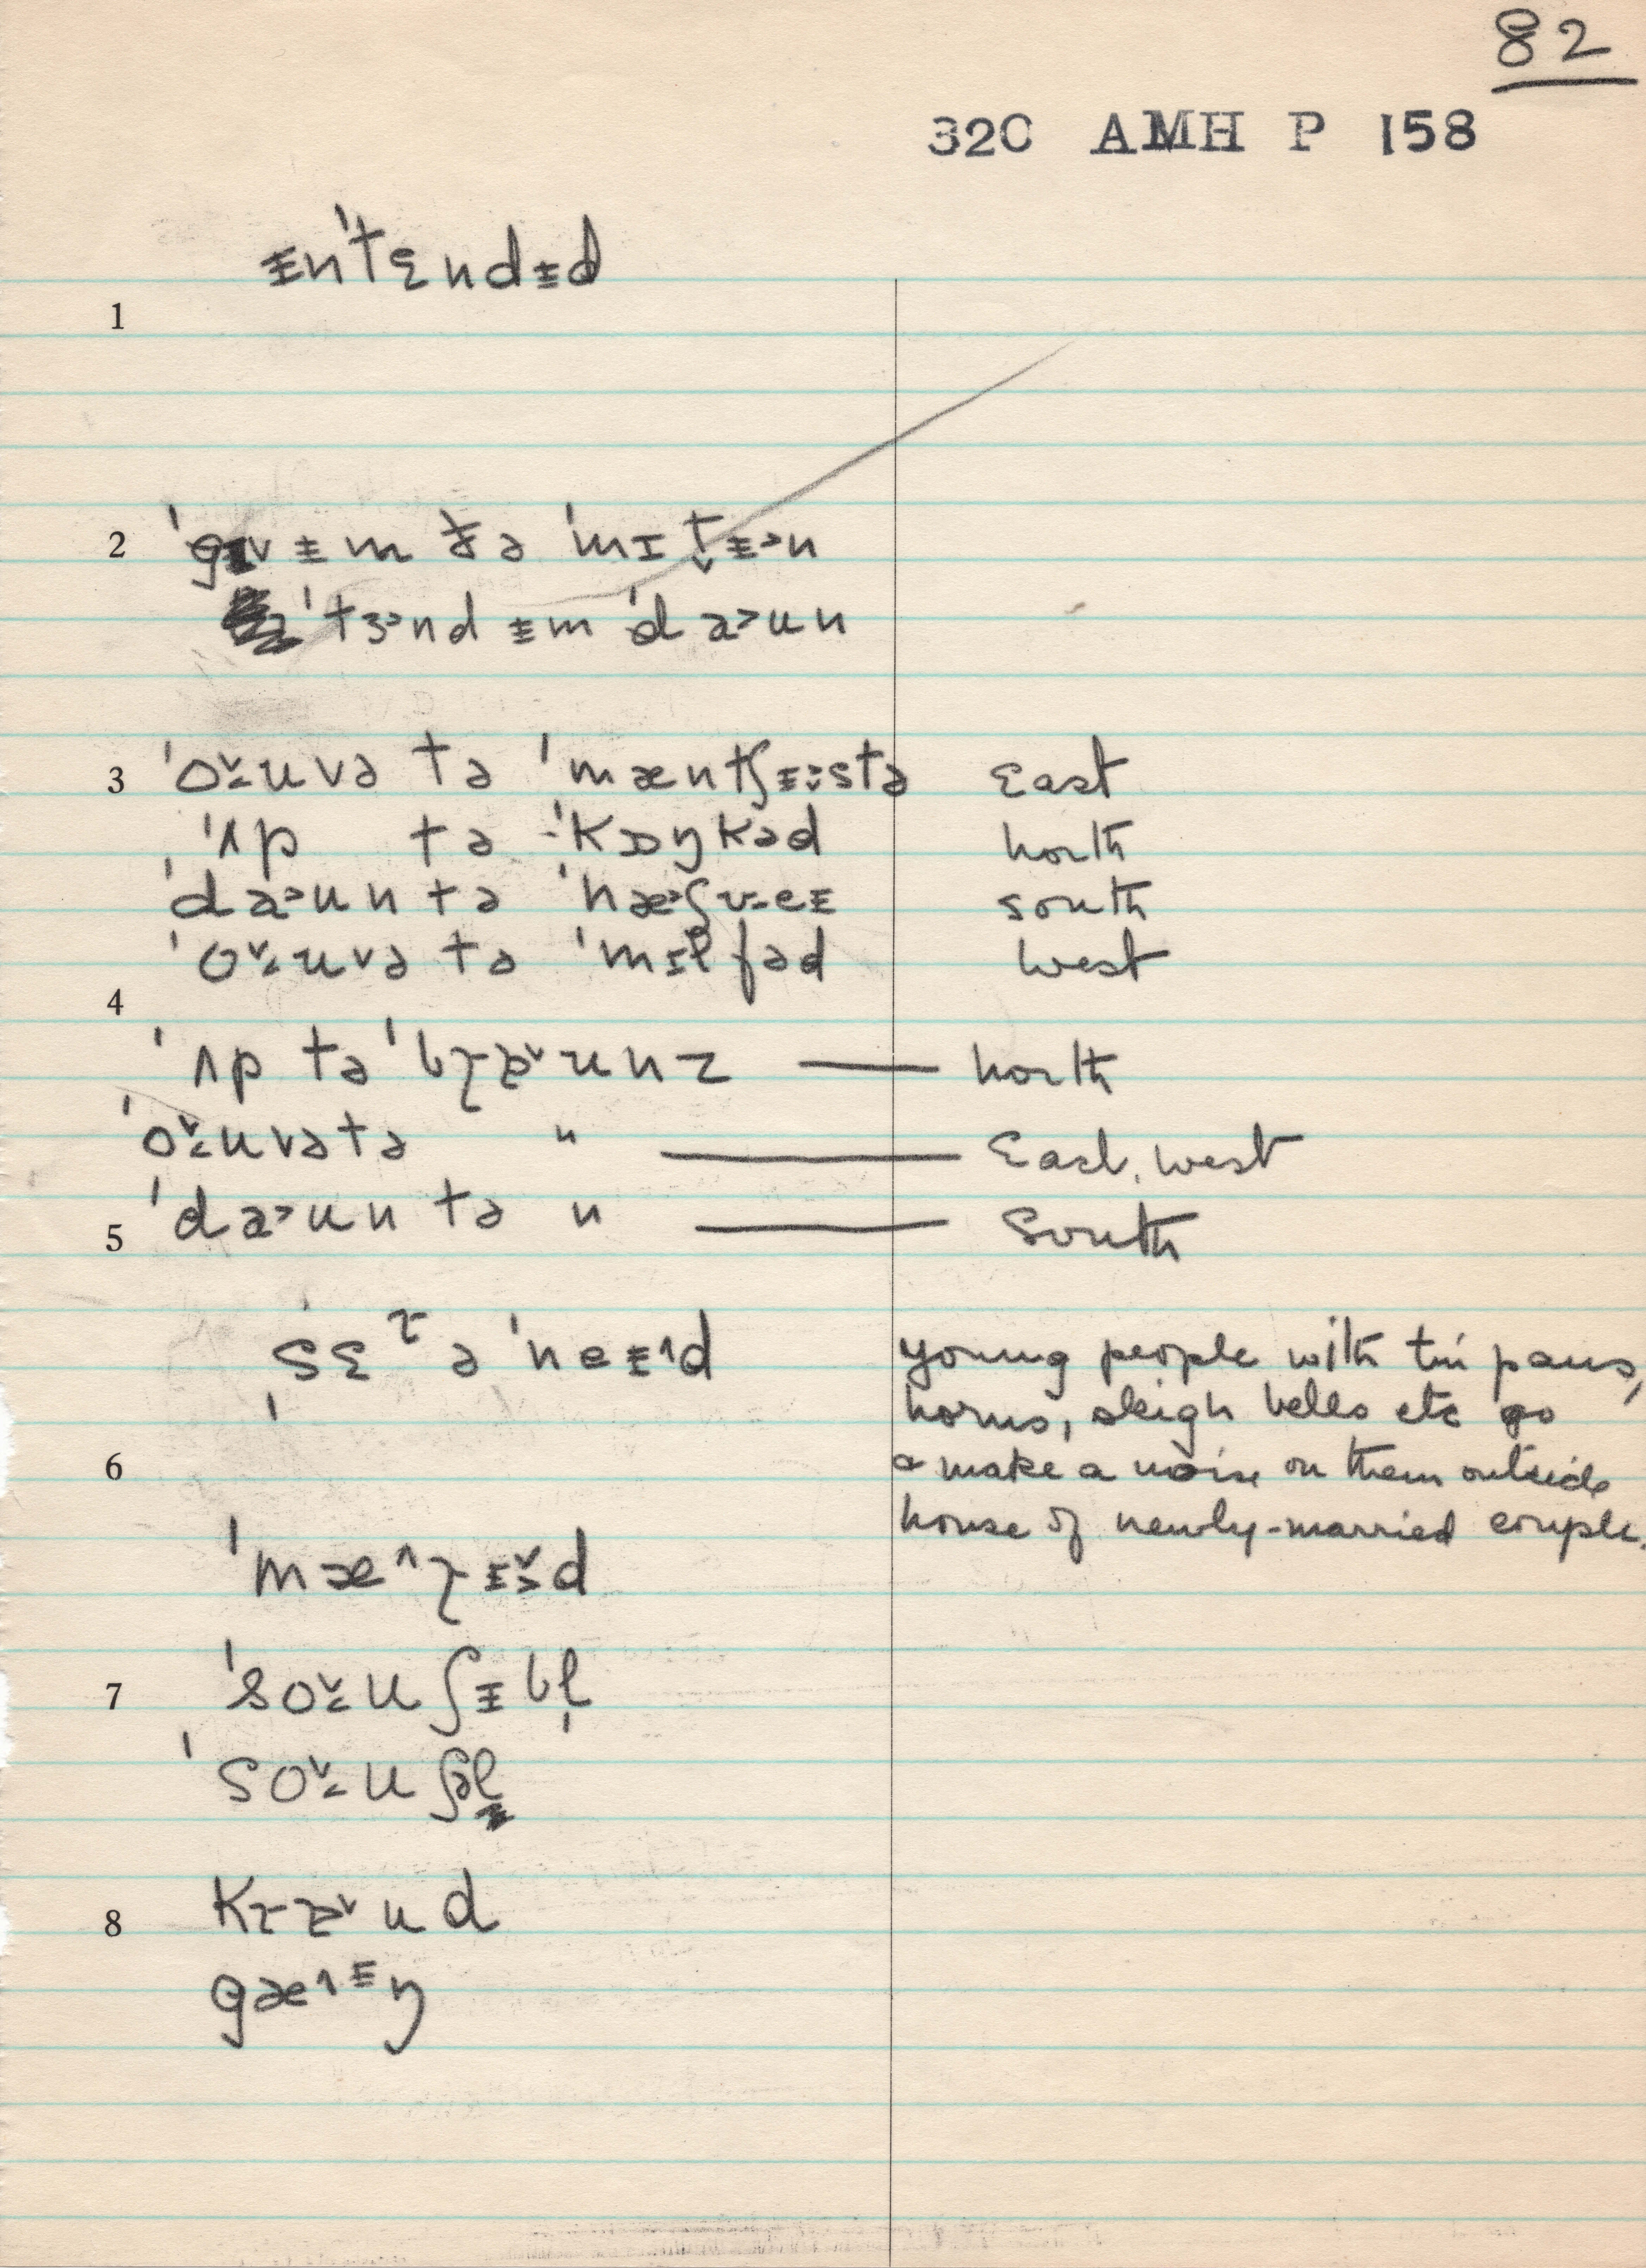 82
32C AMH P 158
ᵻn'tɛndᵻd
1
2 'gɪvᵻm ðə 'mɪt̬ᵻ˃n
'tɜ˃nd ᵻm 'da˃un
3 'o̬uvə tə 'mæntʃᵻ˃stə East
'ʌp tə 'kɒŋkəd north
'da˃un tə 'næ˃ʃueᵻ south
'o̬uvə tə 'mɪlfəd west
4
'ʌp tə 'bɽɐ˅unz — north
'o̬uvə tə " — East, west
'da˃un tə " — South
5
'sɛ ɽ ə 'neᵻ˄d young people with tin pans,
horns, sleigh bells etc go
6 & make a noise on them outside
house of newly-married couple.
'mæ˄ɽᵻ˅d
7 'so̬uʃᵻbl̩
'so̬uʃəl
8 kɽɐ˅ud
gæ˄ᵻŋ